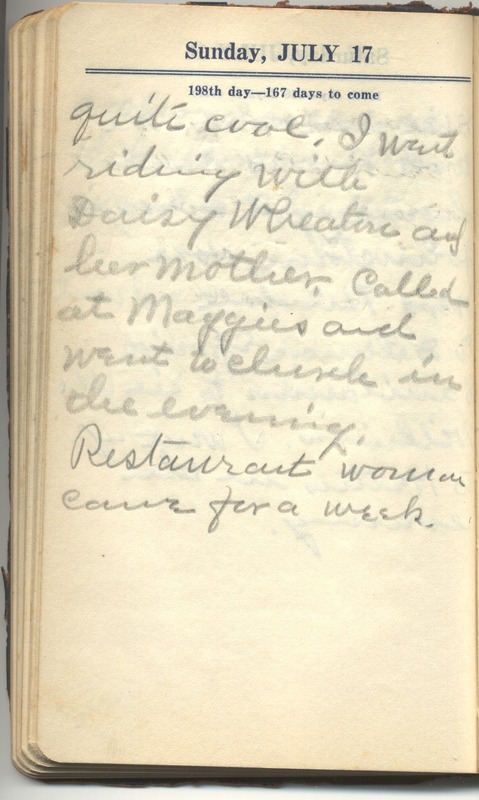 Sunday, JULY 17
198th day—167 days to come
quite cool. I went
riding with
Daisy Wheaton and
her mother. Called
at Maggies and
went to church in
the evening.
Restaurant woman
came for a week.